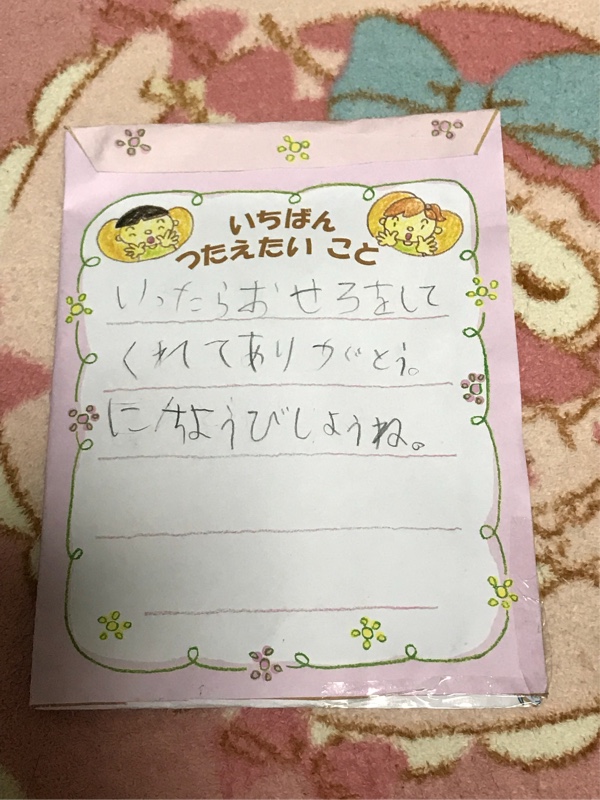 いちばん
つたえたい こと
いったらおせろをして
くれてありがとう。
にちようびしようね。